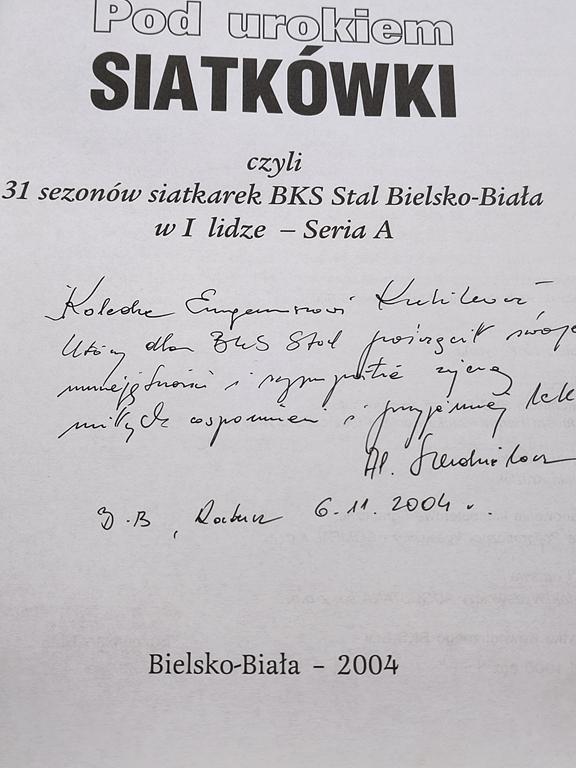 Pod urokiem
SIATKÓWKI
czyli
31 sezonów siatkarek BKS Stal Bielsko-Biała
w I lidze – Seria A
Koledze Eugeniuszowi
który dla BKS Stal poświęcił swoje
umiejętności i sympatię życzę
miłych wspomnień i przyjemnej lek
B.B, 6.11.2004 r.
Bielsko-Biała – 2004